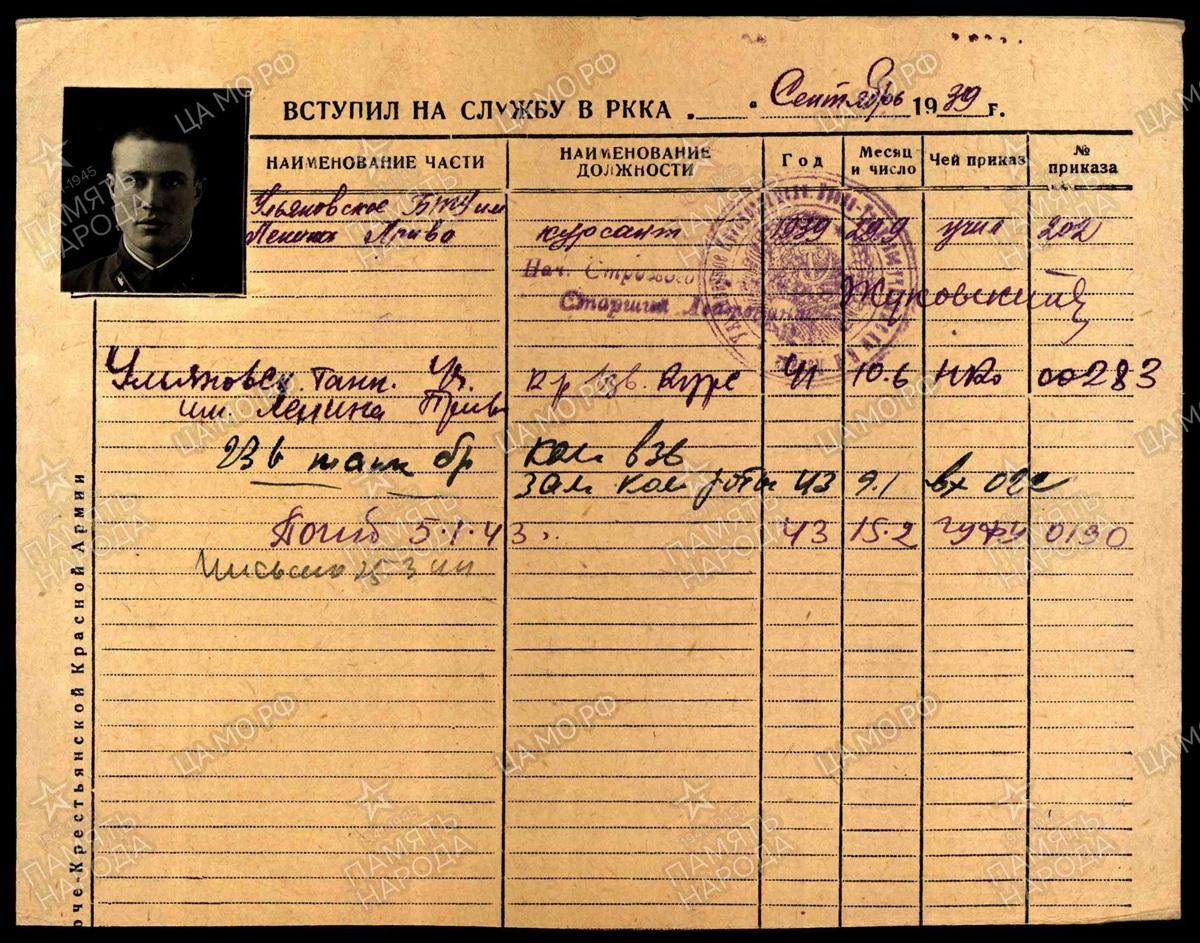 ВСТУПИЛ НА СЛУЖБУ В РККА „ “ Сентябрь 1939 г.
НАИМЕНОВАНИЕ ЧАСТИ НАИМЕНОВАНИЕ ДОЛЖНОСТИ Год Месяц и число Чей приказ № приказа
Ульяновское БТУ им
Ленина Приво курсант 1939 29.9 учил 202
Нач. Строевого
Старший Лейтенант Жуковский
Ульяновск. танк. Уч. Кр взв. Курс 41 10.6 НКО 00283
им. Ленина Приво
236 танк бр ком взв
зам ком роты 43 9.1 вх
Погиб 5.1.43г. 43 15.2 ГУФУ 0130
Письмо
оче-Крестьянской Красной Армии
ЦАМО РФ
1945
ПАМЯТЬ
НАРОДА